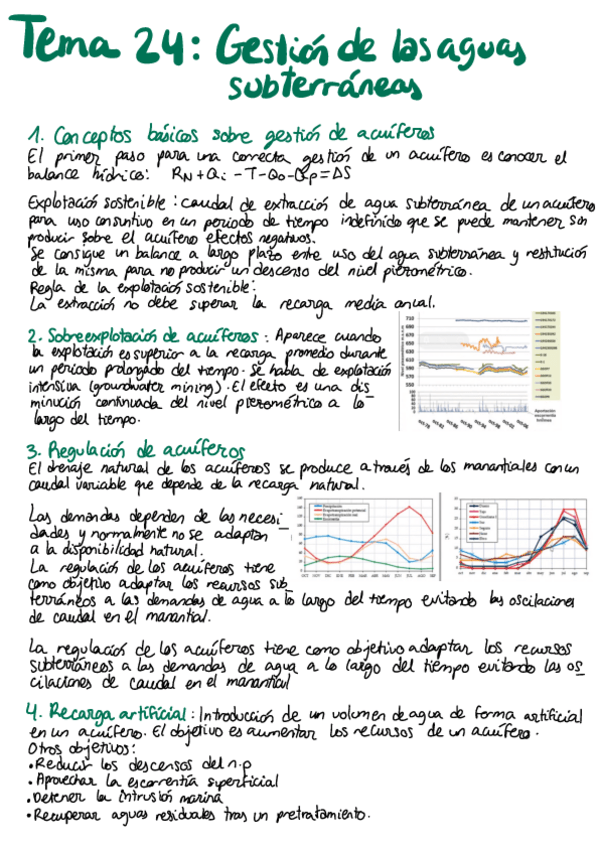 Tema 24: Gestión de las aguas
subterráneas
1. Conceptos básicos sobre gestión de acuíferos
El primer paso para una correcta gestión de un acuífero es conocer el
balance hídrico: RN+Qi-T-Qo-Qp=ΔS
Explotación sostenible: caudal de extracción de agua subterránea de un acuífero
para uso consuntivo en un periodo de tiempo indefinido que se puede mantener sin
producir sobre el acuífero efectos negativos.
Se consigue un balance a largo plazo entre uso del agua subterránea y restitución
de la misma para no producir un descenso del nivel piezométrico.
Regla de la explotación sostenible:
La extracción no debe superar la recarga media anual.
2. Sobreexplotación de acuíferos: Aparece cuando
la explotación es superior a la recarga promedio durante
un periodo prolongado del tiempo. Se habla de explotación
intensiva (groundwater mining). El efecto es una dis_
minución continuada del nivel piezométrico a lo
largo del tiempo.
710
690
670
650
630
610
590
570
550
3. Regulación de acuíferos
El drenaje natural de los acuíferos se produce a través de los manantiales con un
caudal variable que depende de la recarga natural.
Las demandas dependen de las necesi_
dades y normalmente no se adaptan
a la disponibilidad natural.
La regulación de los acuíferos tiene
como objetivo adaptar los recursos sub_
terráneos a las demandas de agua a lo largo del tiempo evitando las oscilaciones
de caudal en el manantial.
OCT NOV DIC ENE FEB MAR ABR MAY JUN JUL AGO SEP
La regulación de los acuíferos tiene como objetivo adaptar los recursos
subterráneos a las demandas de agua a lo largo del tiempo evitando las os_
cilaciones de caudal en el manantial
4. Recarga artificial: Introducción de un volumen de agua de forma artificial
en un acuífero. El objetivo es aumentar los recursos de un acuífero.
Otros objetivos:
• Reducir los descensos del n.p
• Aprovechar la escorrentía superficial
• Detener la intrusión marina
• Recuperar aguas residuales tras un pretratamiento.